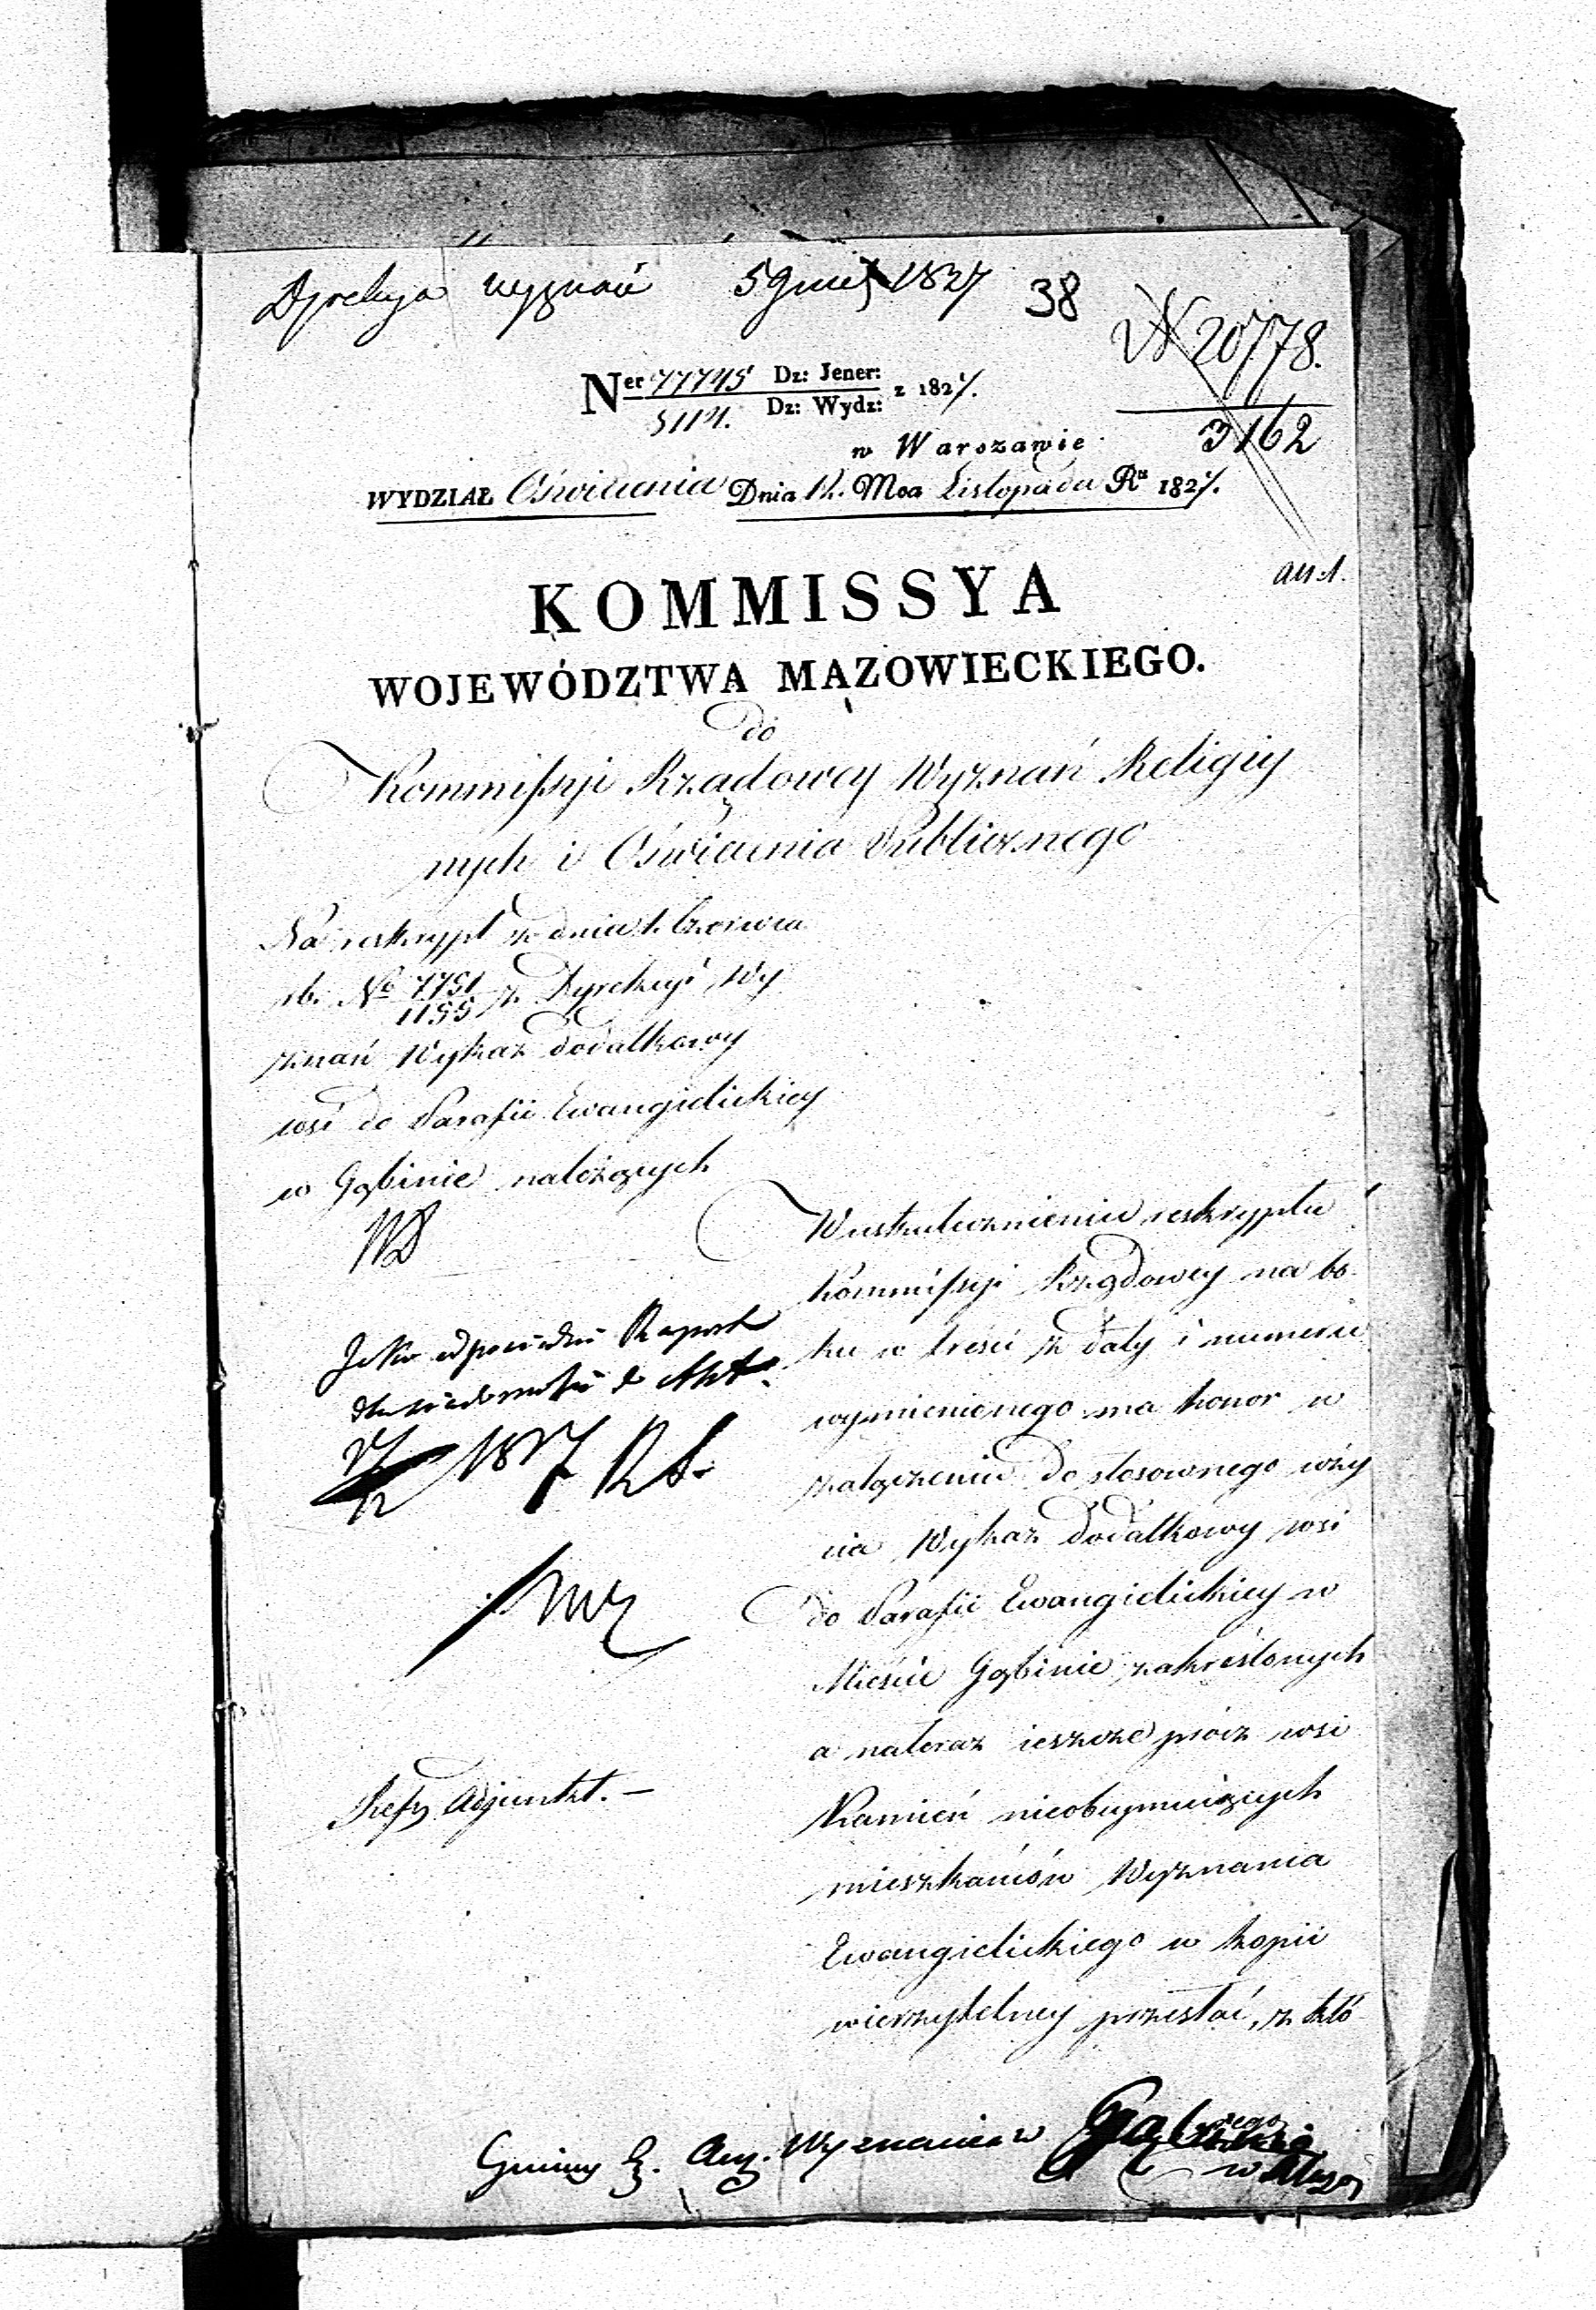 Dyrekcya wyznań 5 Gru 1827 38
N 20778.
3162
Ner 77745 Dz: Jener: z 1827.
5114. Dz: Wydz:
w Warszawie
WYDZIAŁ Oświecenia Dnia 12. Msca Listopada Ru 1827.
KOMMISSYA
WOJEWÓDZTWA MAZOWIECKIEGO.
do
Kommissyi Rządowey Wyznań Religiy
nych i Oświecenia Publicznego
Na reskrypt z dnia 1. Czerwca
rb. No 7751/1155 z Dyrekcyi Wy
znań Wykaz dodatkowy
wsi do Parafii Ewangielickiey
w Gąbinie należących
W uskutecznieniu reskryptu
Kommissyi Rządowey na bo
ku w treści z daty i numeru
wymienionego ma honor w
załączeniu do stosownego uży
cia Wykaz dodatkowy wsi
do Parafii Ewangielickiey w
Mieście Gąbinie zakreślonych
a nateraz ieszcze prócz wsi
Kamień nieobeymuiących
mieszkańców Wyznania
Ewangielickiego w kopii
wierzytelney przesłać, z któ
Jako odpowiedni Raport
dla wiadomości do Akt.
1827
Adjunkt.
Gminy E. Aug. Wyznania w Gąbinie